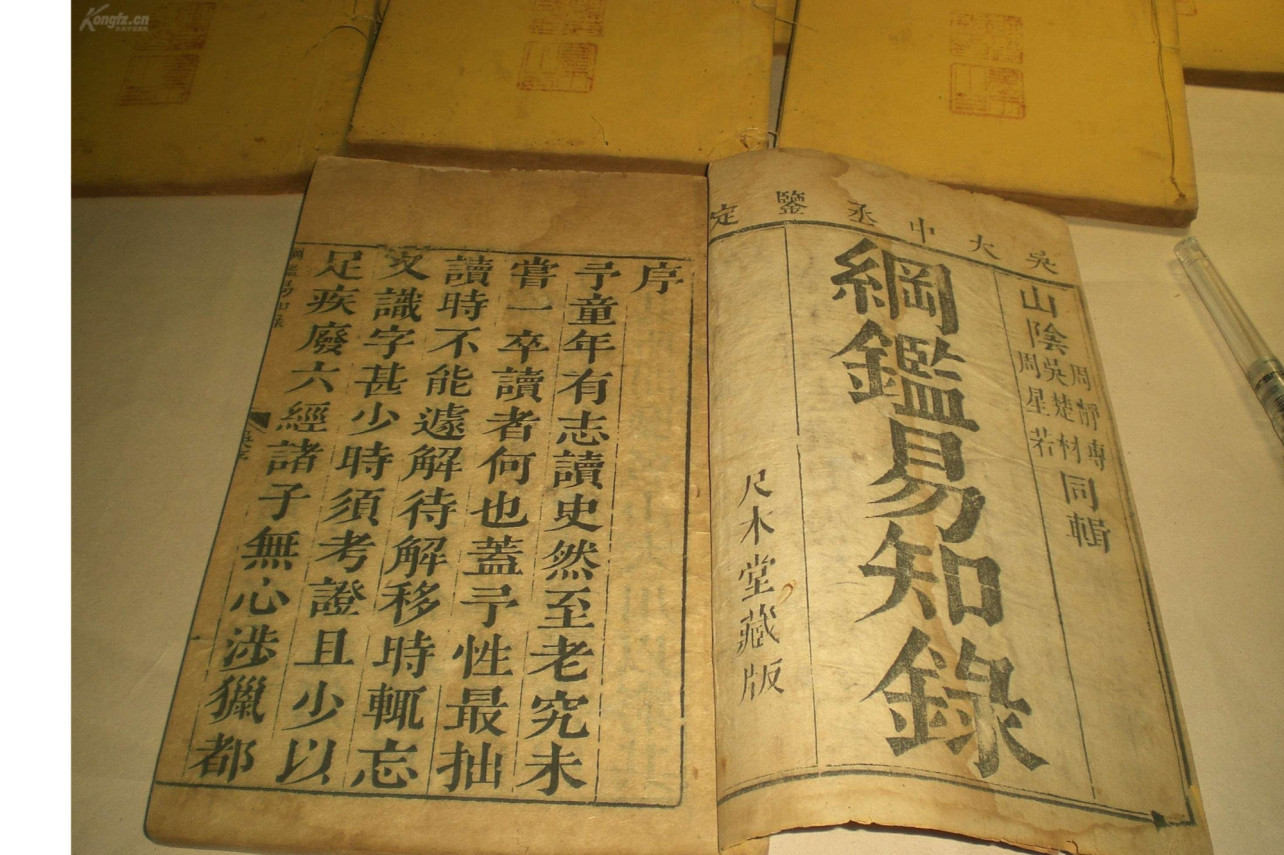 Kongfz.cn
吳大中丞鑒定
山陰
周靜專
吳楚材
周星若
同輯
綱鑑易知錄
尺木堂藏版
序
予童年有志讀史然至老究未
嘗一卒讀者何也蓋予性最拙
讀時不能遽解待解移時輒忘
又識字甚少時須考證且少以
足疾廢六經諸子無心涉獵都
綱鑑易知錄